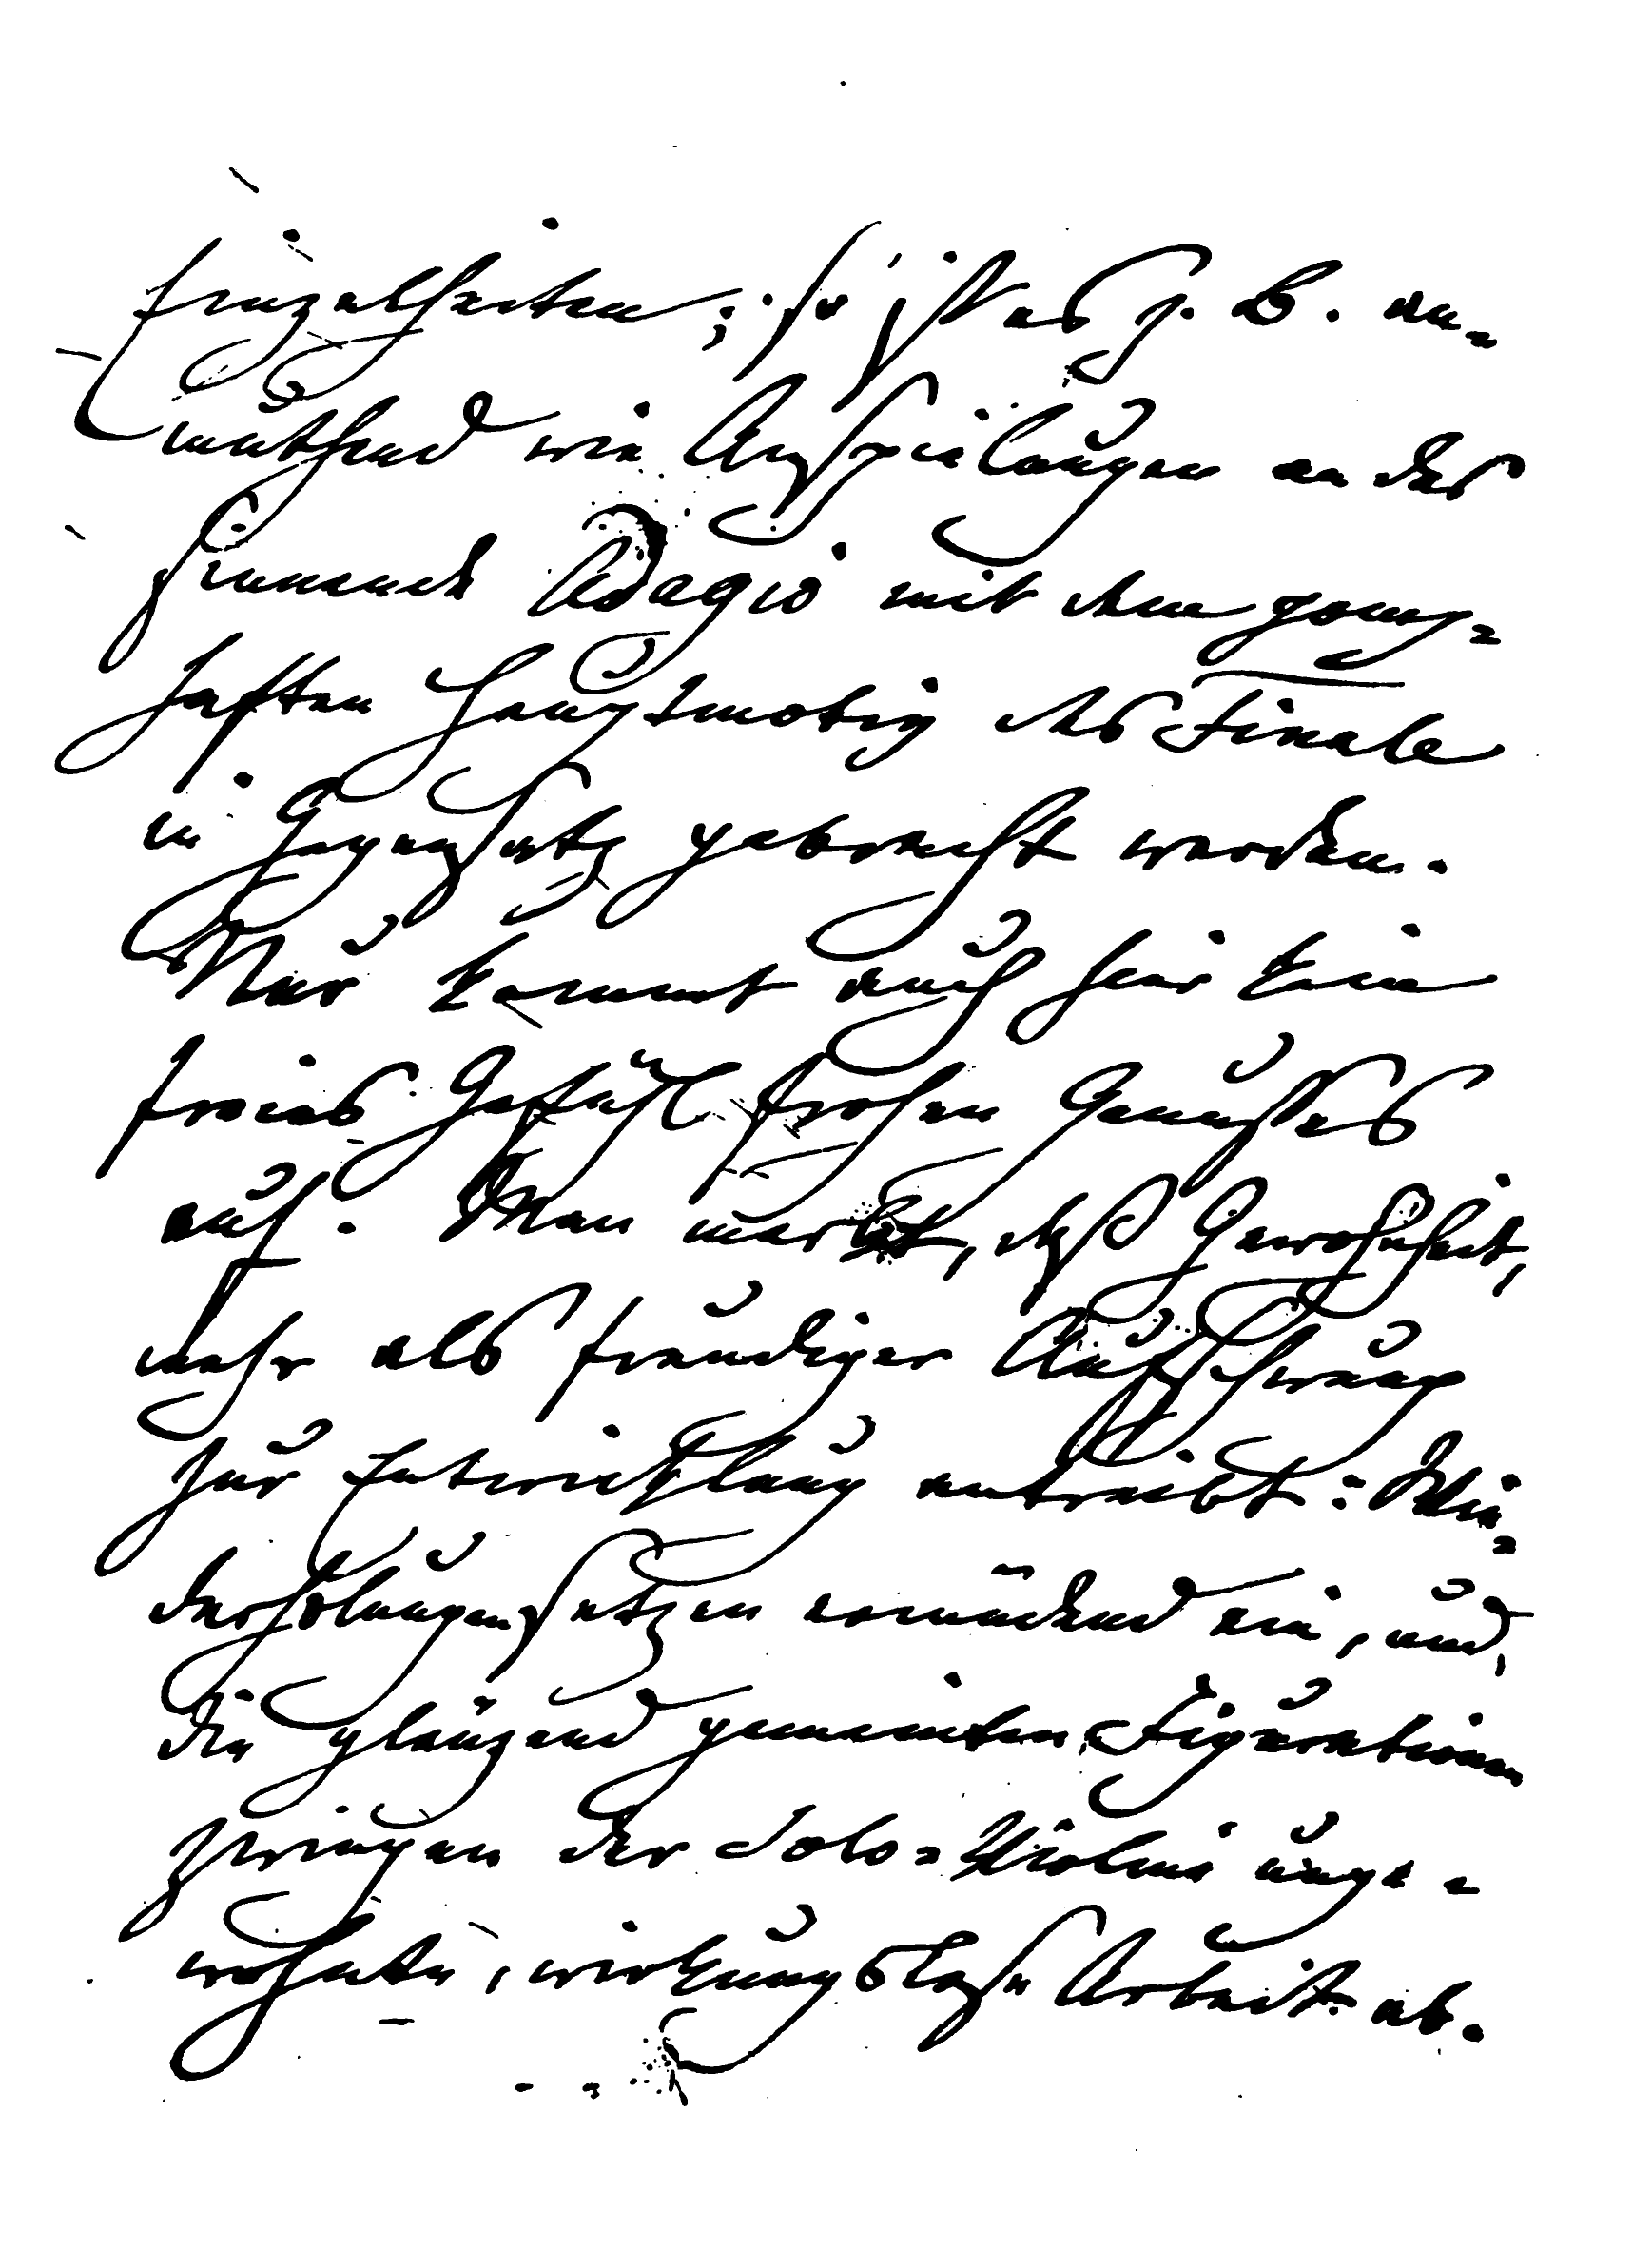 Einzelheiten; so ist es z. B. an-
muthend wie Anspielungen an das
sinnende Adagio mit dem
haften Hauptmotiv des Finale
in Gegensatz gebracht werden.
Nur kommt auch hier kein
freies Gefühl frohen Genusses
auf. Man merkt, daß Gewohnheit,
mehr als freudiger Aufschwung
zur Entwicklung antreibt: Wie-
derholungen setzen ermüdend ein, und
die glänzend gemeinten Figurationen
zwingen der Solo-Violine unge-
wohnte, wirkungslose Arbeit ab.